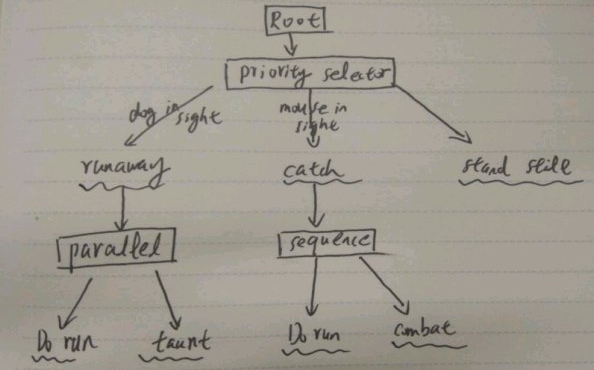 Root
priority selector
dog in sight
mouse in
sight
runaway
catch
stand still
parallel
sequence
Do run
taunt
Do run
combat